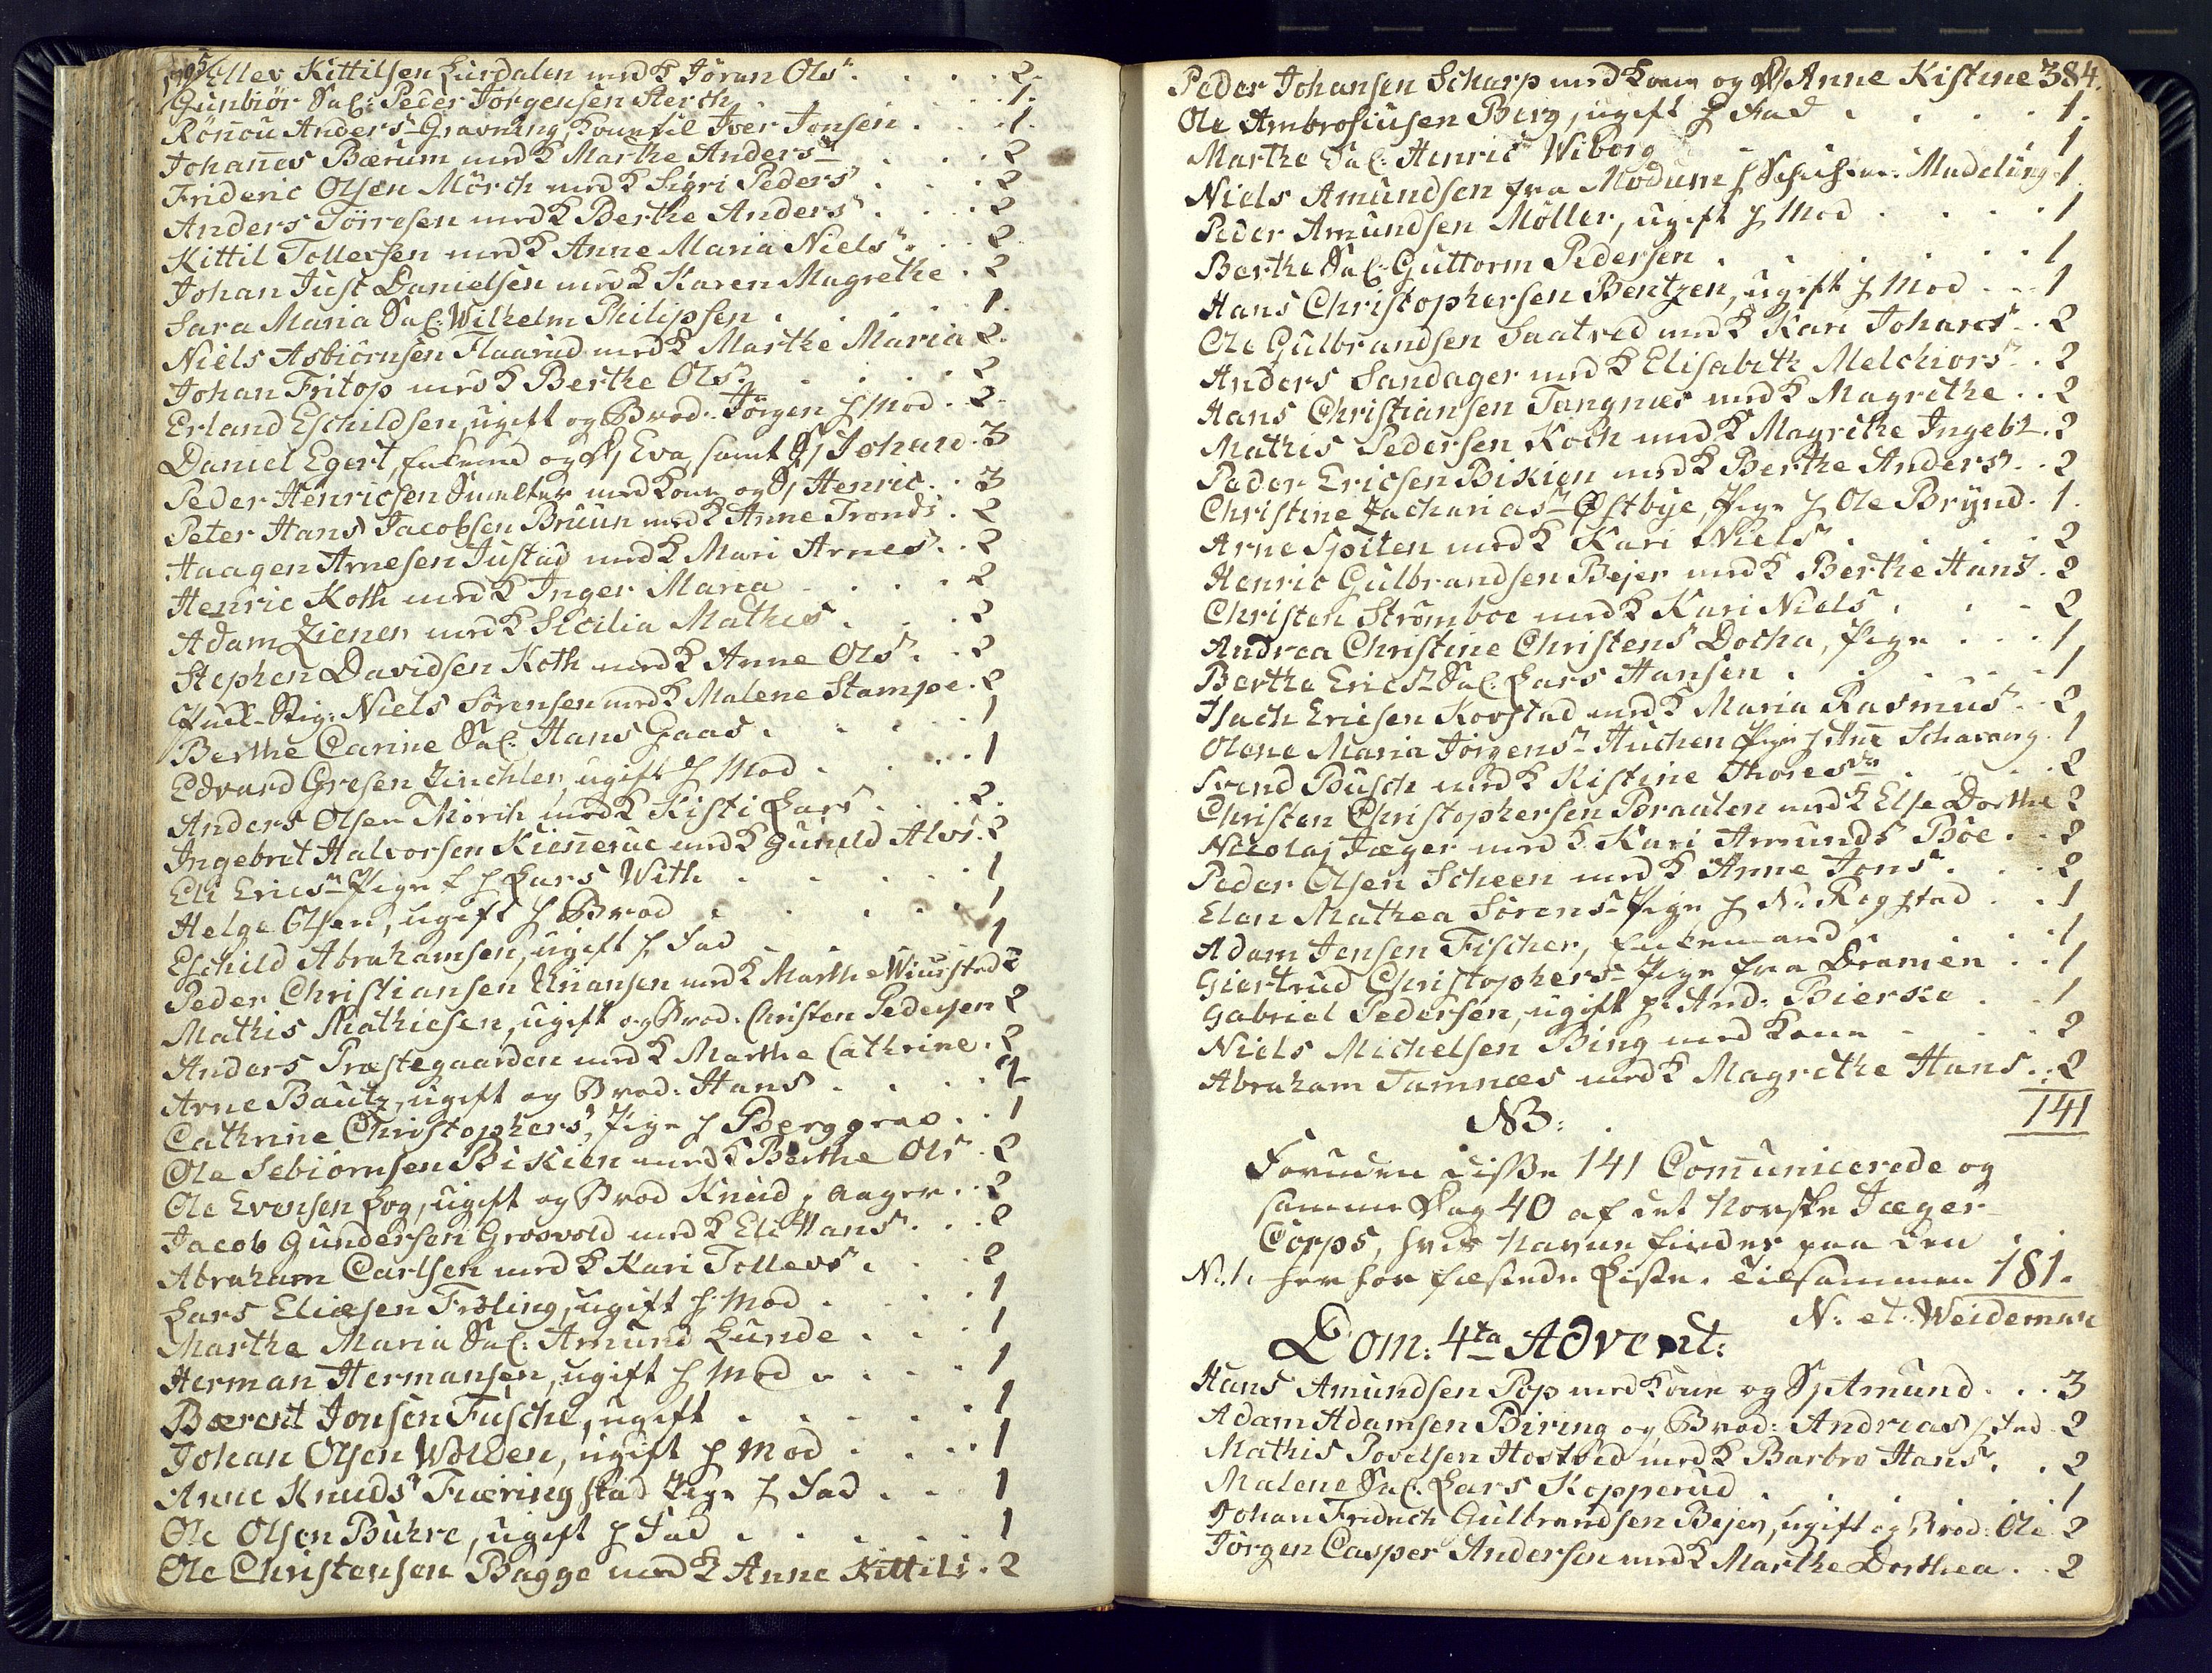 1795
Ellev Kittilsen Lurdalen med K Jöran Ols. . . . 2.
Gunbiör Sal: Peder Jörgensen Sterch . . . 1.
Rönnou Anders Gravning, Kone til Iver Jonsen . . . 1.
Johannes Bærum med K Marthe Anders . . . 2
Frideric Olsen Mörch med K Sigri Peders . . . 2
Anders Törresen med K Berthe Anders . . . 2
Kittil Tollevsen med K Anne Maria Niels . . . 2
Johan Just Danielsen med K Karen Magrethe . 2
Sara Maria Sal: Wilhelm Philipsen . . . 1.
Niels Asbiörnsen Flaarud med K Marthe Maria 2.
Johan Fritop med K Berthe Ols . . . 2
Erland Eschildsen, ugift og Brod: Jörgen h Mod . 2.
Daniel Egert, Enkemd og D Eva, samt S Johan . 3
Peder Henricsen Smelter med Kone og S Henric . . 3
Peter Hans Jacobsen Bruun med K Anne Tronds . 2
Haagen Arnesen Justad med K Mari Arnes . . 2
Henric Koth med K Inger Maria . . . 2
Adam Ziener med K Sicilia Mathis . . . 2
Stephen Davidsen Koth med K Anne Ols . . 2
Niels Sörensen med K Malene Stampe . 2
Berthe Carine Sal: Hans Gaas . . . 1
Edvard Gresen Zinchler, ugift h Mod . . . 1
Anders Olsen Mörch med K Kisti Lars . . . 2.
Ingebret Halvorsen Kiennerue med K Gunild Alvs . 2
Eli Erics Pige h Lars With . . . 1
Helge Olsen, ugift h Brod . . . 1
Eschild Abrahamsen, ugift h Fad . . . 1
Peder Christiansen Unansen med K Marthe Wiurstad 2
Mathis Mathiesen, ugift og Brod: Christen Pedersen 2
Anders Præstegaarden med K Marthe Cathrine . 2
Arne Bautz, ugift og Brod: Hans . . . 2
Cathrine Christophers, Pige h Berggrav . . 1
Ole Sebiörnsen Bikien med K Berthe Ols . 2
Ole Evensen Log, ugift og Brod Knud, Aager . . 2
Jacob Gundersen Grosvold med K Eli Hans . . . 2
Abraham Carlsen med K Kari Tollevs . . . 2
Lars Eliæsen Fröling, ugift h Mod . . . 1
Marthe Maria Sal: Amund Lunde . . . 1
Herman Hermansen, ugift h Mod . . . 1
Bærent Jonsen Fusche, ugift . . . 1
Johan Olsen Wolden, ugift h Mod . . . 1
Anne Knuds Fuæringstad Pige h Fad . . 1
Ole Olsen Buhre, ugift h Fad . . . 1
Ole Christensen Bagge med K Anne Kittils . 2
Peder Johansen Scharp med Kone og D Anne Kistine 384.
Ole Ambrosiusen Berg, ugift h Fad . . . 1.
Marthe Sal: Henric Wiborg . . . 1
Niels Amundsen fra Modum h Madeling . 1
Peder Amundsen Möller, ugift h Mod . . . 1
Berthe Sal: Guttorm Pedersen . . . 1
Hans Christophersen Bentzen, ugift h Mod . . 1
Ole Gulbrandsen Saatved med K Kari Johans . . 2
Anders Sandager med K Elisabeth Melchiors . . 2
Hans Christiansen Tangnæs med K Magrethe . . 2
Mathis Pedersen Koch med K Magrethe Ingebr . 2
Peder Ericsen Bikien med K Berthe Anders . . 2
Christine Zacharias Østbye, Pige h Ole Brynd . 1.
Arne Spiten med K Kari Niels . . . 2
Henric Gulbrandsen Bejer med K Berthe Hans . 2
Christen Strömboe med K Kari Niels . . . 2
Andrea Christine Christens Docha, Pige . . . 1
Berthe Erics Sal: Lars Hansen . . . 1
Isach Ericsen Korstad med K Maria Rasmus . . 2
Olene Maria Jörgens Huchen Pige h Schavang . 1
Svend Busch med K Kistine Thores . . . 2
Christen Christophersen Braaten med K Else Dorthe 2
Nicolaj Jæger med K Kari Amunds Böe . . 2
Peder Olsen Scheen med K Anne Jons . . . 2
Elen Mathea Sörens Pige h N: Rogstad . . 1
Adam Jensen Fischer, Enkemand . . . 1
Giertrud Christophers Pige fra Dramen . . 1
Gabriel Pedersen, ugift h And: Bierke . . 1
Niels Michelsen Bing med Kone . . . 2
Abraham Tamnæs med K Magrethe Hans . . 2
NB:
141
Foruden disse 141 Communicerede og
samme Dag 40 af det Norske Jæger
Corps, hvis Navne findes paa den
N. 1. her for fæstede Liste. Tilsammen 181.
N: et Weideman
Dom: 4ta Advent:
Hans Amundsen Pop med Kone og S Amund . . . 3
Adam Adamsen Biring og Brod: Andreas h Fad . 2
Mathis Povelsen Hostvéd med K Barbro Hans . . 2
Malene Sal: Lars Kopperud . . . 1
Johan Fridrich Gulbrandsen Bejer, ugift og Brod: Ole 2
Jörgen Casper Andersen med K Marthe Dorthea . . 2